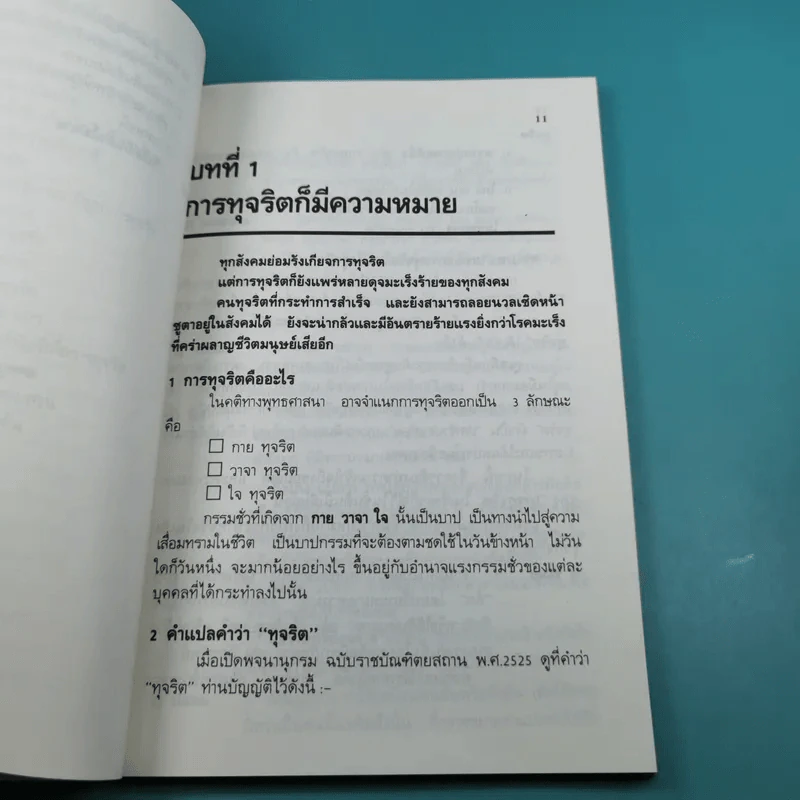 11
บทที่ 1
การทุจริตก็มีความหมาย
ทุกสังคมย่อมรังเกียจการทุจริต
แต่การทุจริตก็ยังแพร่หลายดุจมะเร็งร้ายของทุกสังคม
คนทุจริตที่กระทำการสำเร็จ และยังสามารถลอยนวลเชิดหน้า
ชูตาอยู่ในสังคมได้ ยังจะน่ากลัวและมีอันตรายร้ายแรงยิ่งกว่าโรคมะเร็ง
ที่คร่าผลาญชีวิตมนุษย์เสียอีก
1 การทุจริตคืออะไร
ในคติทางพุทธศาสนา อาจจำแนกการทุจริตออกเป็น 3 ลักษณะ
คือ
☐ กาย ทุจริต
☐ วาจา ทุจริต
☐ ใจ ทุจริต
กรรมชั่วที่เกิดจาก กาย วาจา ใจ นั้นเป็นบาป เป็นทางนำไปสู่ความ
เสื่อมทรามในชีวิต เป็นบาปกรรมที่จะต้องตามชดใช้ในวันข้างหน้า ไม่วัน
ใดก็วันหนึ่ง จะมากน้อยอย่างไร ขึ้นอยู่กับอำนาจแรงกรรมชั่วของแต่ละ
บุคคลที่ได้กระทำลงไปนั้น
2 คำแปลคำว่า “ทุจริต”
เมื่อเปิดพจนานุกรม ฉบับราชบัณฑิตยสถาน พ.ศ.2525 ดูที่คำว่า
“ทุจริต” ท่านบัญญัติไว้ดังนี้ :–